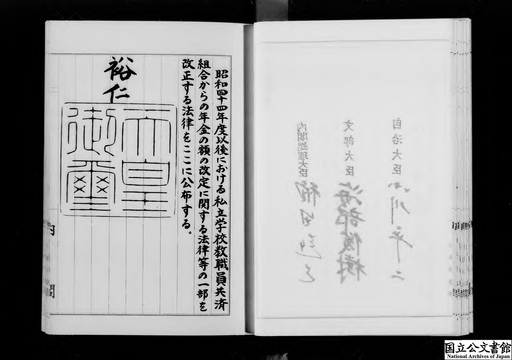 昭和四十四年度以後における私立学校教職員共済
組合からの年金の額の改定に関する法律等の一部を
改正する法律をここに公布する。
裕仁
天皇
御璽
自治大臣 小川平二
文部大臣 海部俊樹
内閣総理大臣 福田赳夫
国立公文書館
National Archives of Japan